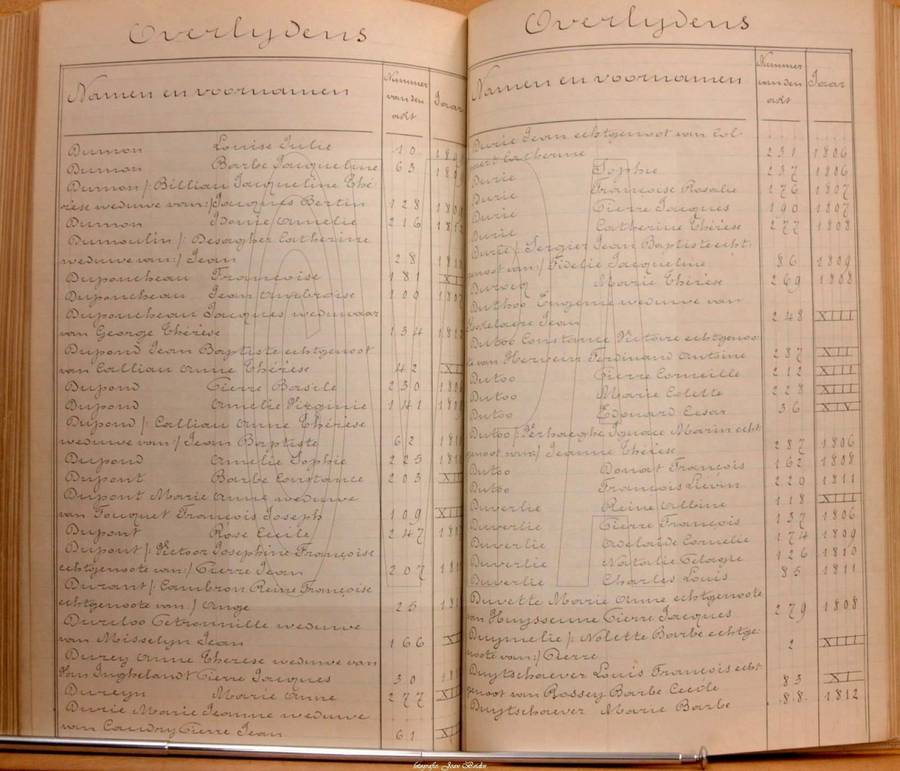 Overlydens
Namen en voornamen Nummer van den akt Jaar
Dumon Louise Julie 10
Dumon Barbe Jacqueline 63
Dumon /: Billiau Jacqueline Thé-
rèse weduwe van:/ Jacques Bertin 128
Dumon Idonie Amelie 216
Dumoulin /: Desagher Catherine
weduwe van:/ Jean 28
Duponcheau Françoise 181
Duponcheau Jean Ambroise 100
Duponcheau Jacques weduwaar
van George Thérèse 134
Dupond Jean Baptiste echtgenoot
van Calliau Anne Thérèse 42
Dupond Pierre Basile 230
Dupond Amelie Virginie 141
Dupond /: Calliau Anne Thérèse
weduwe van:/ Jean Baptiste 62
Dupond Amelie Sophie 225
Dupont Barbe Constance 203
Dupont Marie Anne weduwe
van Fouquet François Joseph 109
Dupont Rose Cecile 247
Dupont /: Victoor Josephine Françoise
echtgenoote van:/ Pierre Jean 207
Durant /: Cambron Reine Françoise
echtgenoote van:/ Ange 25
Duriloo Petronille weduwe
van Misselyn Jean 166
Durey Anne Therese weduwe van
Van Inghelandt Pierre Jacques 30
Dureyn Marie Anne 277
Durie Marie Jeanne weduwe
van Caudry Pierre Jean 61
Overlydens
Namen en voornamen Nummer van den akt Jaar
Durie Jean echtgenoot van Col-
Catherine 231 1806
Durie Sophie 237 1806
Durie Françoise Rosalie 176 1807
Durie Pierre Jacques 190 1807
Durie Catherine Thérèse 277 1808
Durie /: Sergier Jean Baptiste echt-
genoot van:/ Fidelie Jacqueline 86 1809
Durocq Marie Thérèse 269 1808
Duthoo Eugenie weduwe van
Jean 248 XIII
Dutoo Constance Victoire echtgenoo-
te van Herwein Ferdinand Antoine 287 XII
Dutoo Pierre Corneille 212 XIII
Dutoo Marie Colette 228 XIII
Dutoo Edouard Cesar 36 XIV
Dutoo /: Verhaeghe Ignace Marin echt-
genoot van:/ Jeanne Thérèse 287 1806
Dutoo Donat François 162 1808
Dutoo François Lievin 220 1811
Duverlie Reine Albine 118 XIII
Duverlie Pierre François 137 1806
Duverlie Adelaide Cornelie 174 1809
Duverlie Natalie Pelagie 126 1810
Duverlie Charles Louis 85 1811
Duvette Marie Anne echtgenoote
van Huyssenne Pierre Jacques 279 1808
Duymelie /: Nolette Barbe echtge-
noote van:/ Pierre 2 XIII
Duytschaever Louis François echt-
genoot van Rossey Barbe Cecile 83 XI
Duytschaever Marie Barbe 88 1812
fotografie: Joan Bades